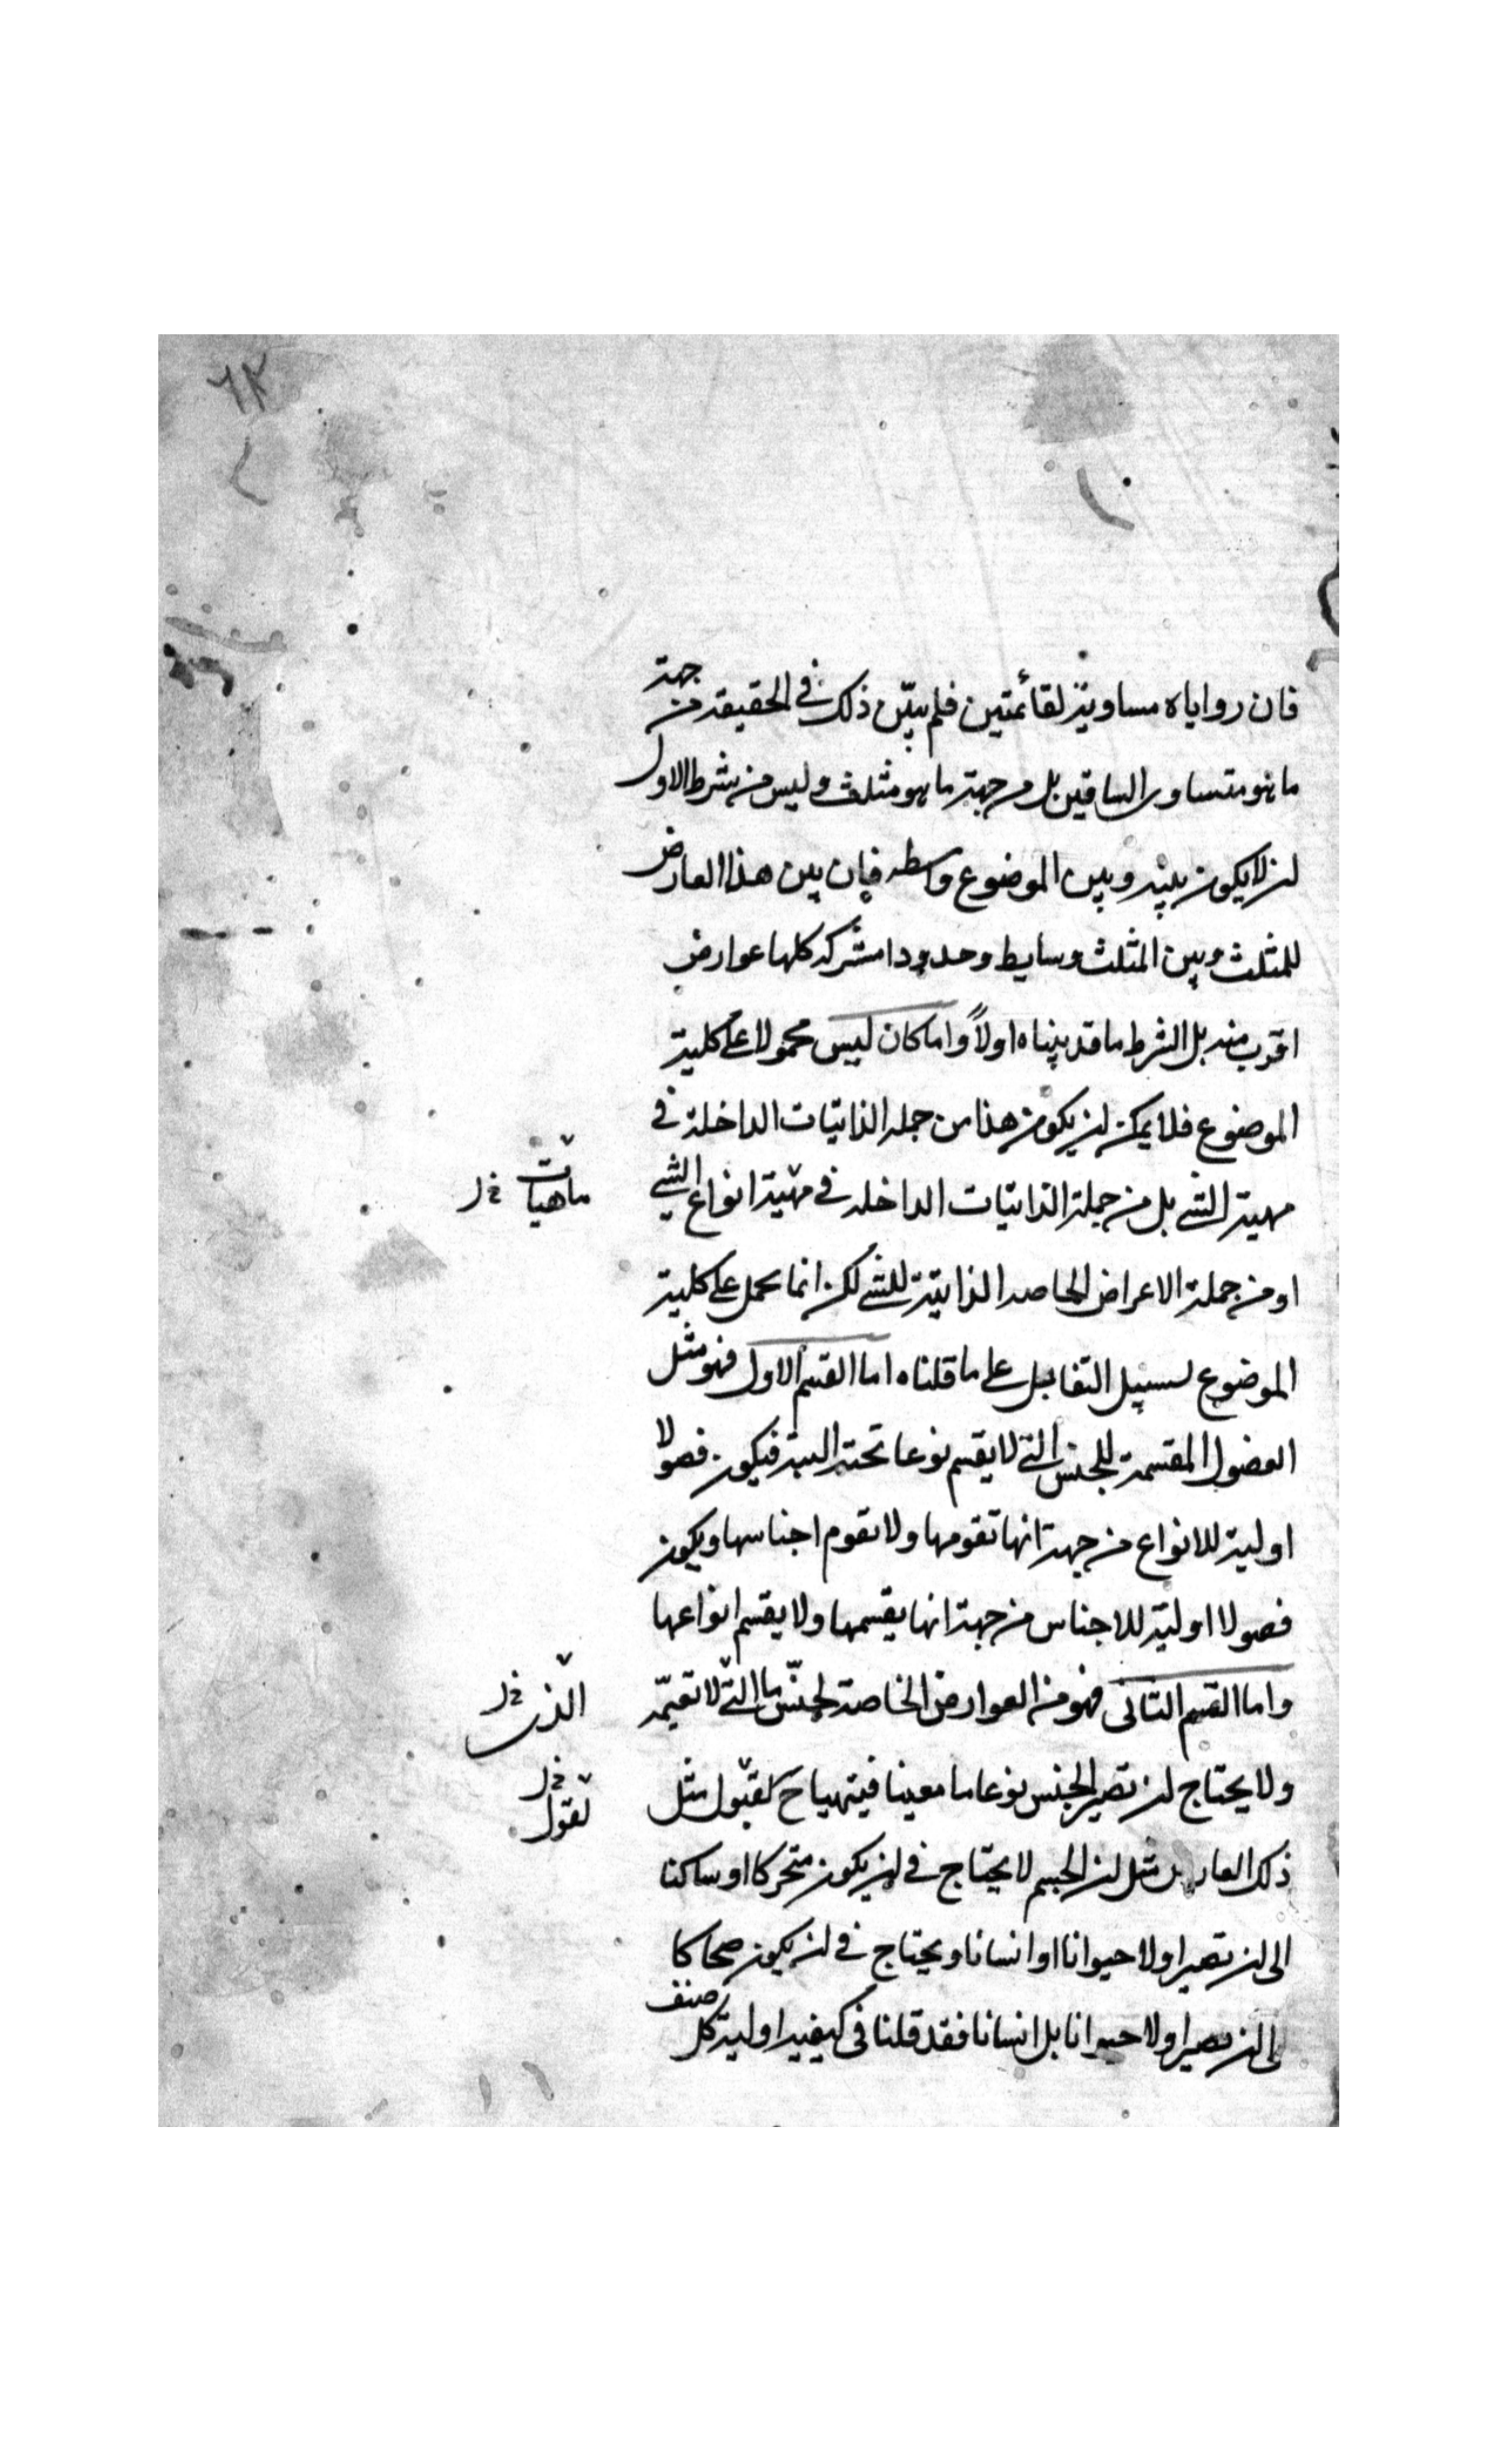 ٦٢
فان زواياه مساوية لقائمتين فلم يبيّن ذلك في الحقيقة من جهة
ما هو متساوى الساقين بل من جهة ما هو مثلث وليس من شرط الاول
ان لا يكون بينه وبين الموضوع واسطه فان بين هذا العارض
للمثلث وبين المثلث وسايط وحدودا مشتركه كلها عوارض
اقرب منه بل الشرط ما قد بيناه اولاً واما كان ليس محمولا على كلية
الموضوع فلا يمكن ان يكون هذا من جمله الذاتيات الداخلة في
مهية الشي بل من جملة الذاتيات الداخله في مهية انواع الشي
ماهيات خ ل
او من جملة الاعراض الخاصه الذاتية للشي لكن انما يحمل على كلية
الموضوع لسبيل التقابل على ما قلناه اما القسم الاول فهو مثل
الفصول المقسمة للجنس التي لا يقسم نوعا تحته البته فيكون فصولا
اولية للانواع من جهة انها تقومها ولا تقوم اجناسها ويكون
فصولا اولية للاجناس من جهة انها يقسمها ولا يقسم انواعها
واما القسم الثانى فهو من العوارض الخاصة لجنس ما التي لا تعمّه
الذى خ ل
ولا يحتاج ان تصير الجنس نوعا ما معينا فيتهيا ح لقبول مثل
لقبول خ ل
ذلك العارض مثل ان الجسم لا يحتاج في ان يكون متحركا او ساكنا
الى ان تصير اولا حيوانا او انسانا ويحتاج في ان يكون ضحاكا
الى ان تصير اولا حيوانا بل انسانا فقد قلنا فى كيفية اولية كل صنف